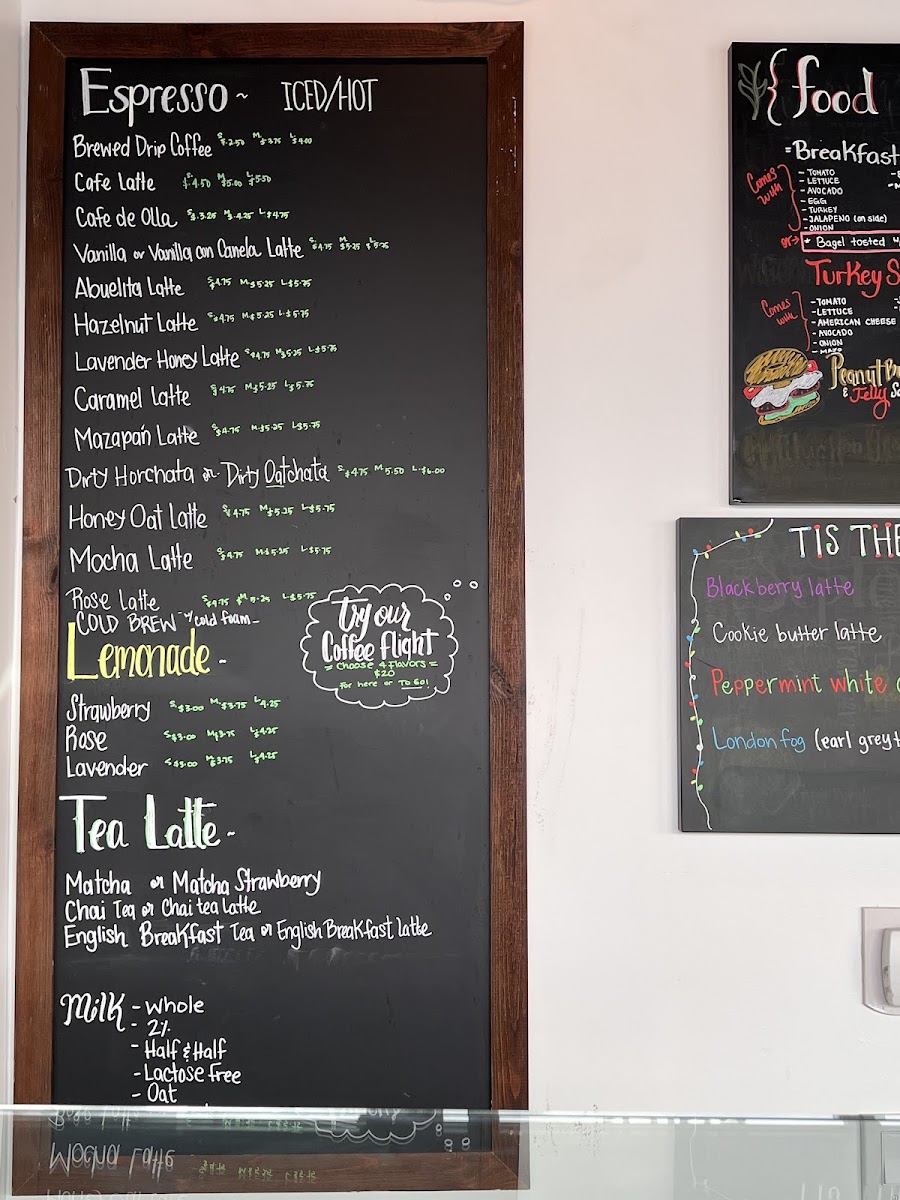 Espresso ~ ICED/HOT
Brewed Drip Coffee S $2.50 M $3.75 L $4.00
Cafe Latte S $4.50 M $5.00 L $5.50
Cafe de Olla S $3.25 M $4.25 L $4.75
Vanilla or Vanilla con Canela Latte S $4.75 M $5.25 L $5.75
Abuelita Latte S $4.75 M $5.25 L $5.75
Hazelnut Latte S $4.75 M $5.25 L $5.75
Lavender Honey Latte S $4.75 M $5.25 L $5.75
Caramel Latte S $4.75 M $5.25 L $5.75
Mazapán Latte S $4.75 M $5.25 L $5.75
Dirty Horchata or Dirty Oatchata S $4.75 M $5.50 L $6.00
Honey Oat Latte S $4.75 M $5.25 L $5.75
Mocha Latte S $4.75 M $5.25 L $5.75
Rose Latte S $4.75 M $5.25 L $5.75
COLD BREW w/ cold foam -
try our
Coffee flight
= Choose 4 flavors =
$20
For here or TO GO!
Lemonade -
Strawberry S $3.00 M $3.75 L $4.25
Rose S $3.00 M $3.75 L $4.25
Lavender S $3.00 M $3.75 L $4.25
Tea Latte ~
Matcha or Matcha Strawberry
Chai Tea or Chai tea Latte
English Breakfast Tea or English Breakfast latte
Milk - Whole
- 2%
- Half & Half
- Lactose Free
- Oat
{ food
= Breakfast
Comes with
- TOMATO
- LETTUCE
- AVOCADO
- EGG
- TURKEY
- JALAPENO (on side)
- ONION
or → * Bagel tosted
Turkey S
Comes with
- TOMATO
- LETTUCE
- AMERICAN CHEESE
- AVOCADO
- ONION
- MAYO
Peanut Bu
& Jelly
TIS THE
Blackberry latte
Cookie butter latte
Peppermint white
London fog (earl grey t